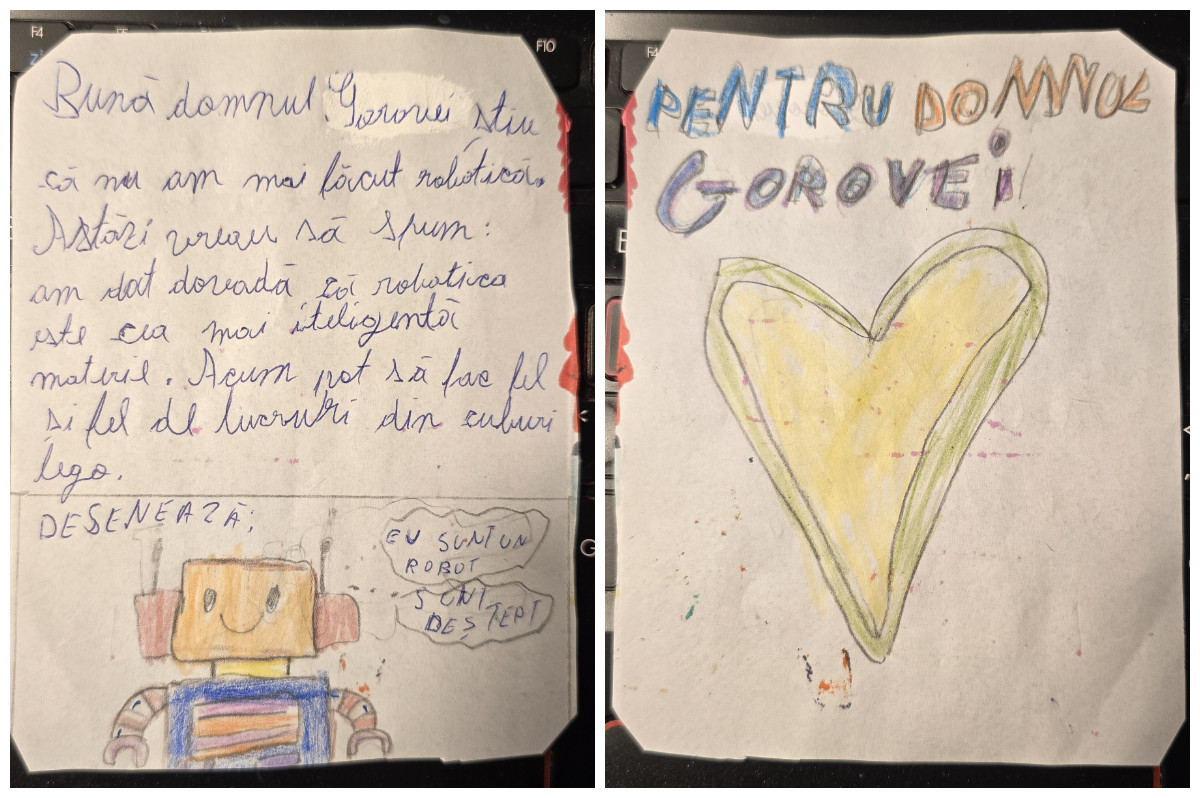 Bună domnul Gorovei știu
că nu am mai făcut robotică.
Astăzi vreau să spum:
am dat dovadă că robotica
este cea mai iteligentă
materie. Acum pot să fac fel
si fel de lucruri din cuburi
lego.
DESENEAZĂ:
EU SUNT UN
ROBOT
SUNT
DEȘTEPT
PENTRU DOMNUL
GOROVEi
F4
F10
F4